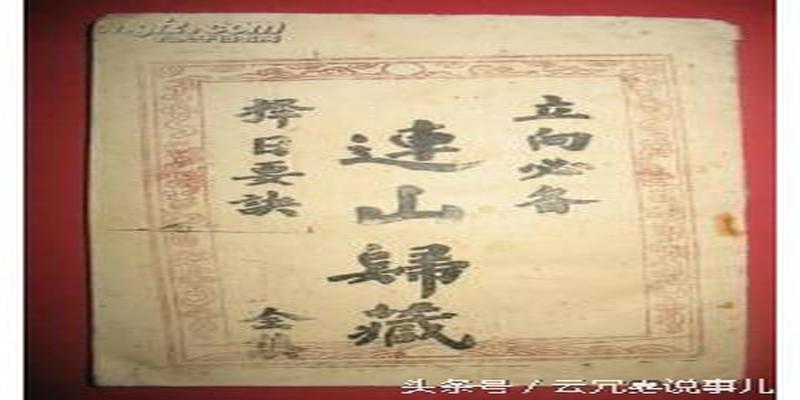 立向必备
連山歸藏
擇日要訣
全集
头条号/云冗卷说事儿